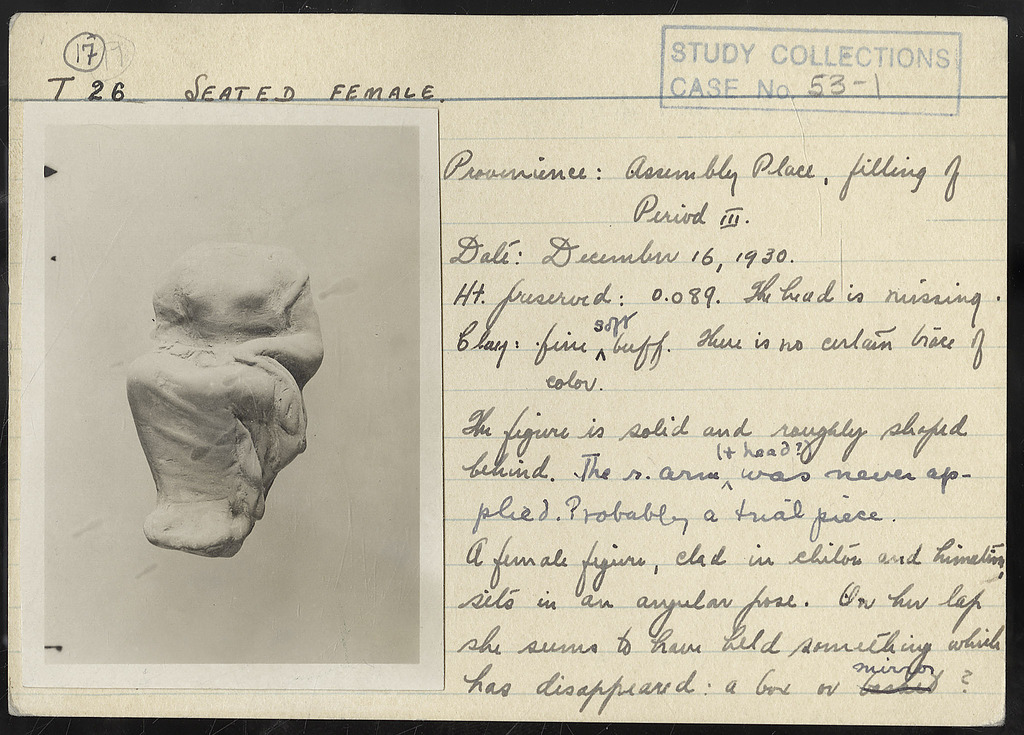 17
T 26 SEATED FEMALE.
STUDY COLLECTIONS
CASE No. 53-1
Provenience: Assembly Place, filling of
Period III.
Date: December 16, 1930.
Ht. preserved: 0.089. The head is missing.
Clay: fine soft buff. There is no certain trace of
color.
The figure is solid and roughly shaped
behind. The r. arm (+ head?) was never ap-
plied. Probably a trial piece.
A female figure, clad in chiton and himation,
sits in an angular pose. On her lap
she seems to have held something which
has disappeared: a box or mirror ?